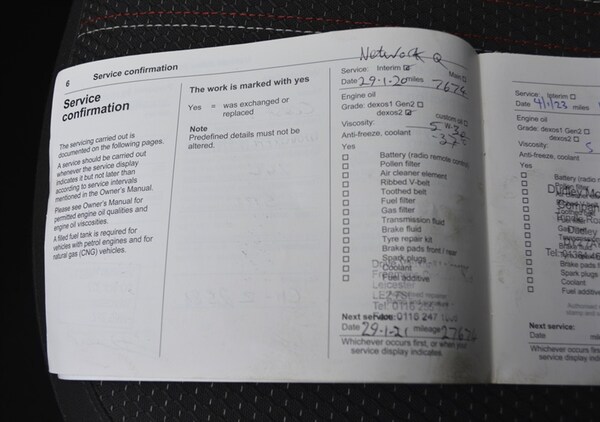 6 Service confirmation
Service
confirmation
The servicing carried out is
documented on the following pages.
A service should be carried out
whenever the service display
indicates it but not later than
according to service intervals
mentioned in the Owner's Manual.
Please see Owner's Manual for
permitted engine oil qualities and
engine oil viscosities.
A filled fuel tank is required for
vehicles with petrol engines and for
natural gas (CNG) vehicles.
The work is marked with yes
Yes = was exchanged or
replaced
Note
Predefined details must not be
altered.
Network Q
Service: Interim ☑ Main ☐
Date 29-1-20 miles 7674
Engine oil
Grade: dexos1 Gen2 ☐
dexos2 ☑ custom oil ☐
Viscosity: 5 W-30
Anti-freeze, coolant
Yes
☐ Battery (radio remote control)
☐ Pollen filter
☐ Air cleaner element
☐ Ribbed V-belt
☐ Toothed belt
☐ Fuel filter
☐ Gas filter
☐ Transmission fluid
☐ Brake fluid
☐ Tyre repair kit
☐ Brake pads front / rear
☐ Spark plugs
☐ Coolant
☐ Fuel additive
Leicester
Next service:
Date 29-1-21 mileage 27674
Whichever occurs first, or when your
service display indicates.
Service: Interim ☐
Date 4/1/23 miles
Engine oil
Grade: dexos1 Gen2 ☐
dexos2 ☐
Viscosity: 5
Anti-freeze, coolant
Yes
☐ Battery (radio
☐
☐
☐
☐
☐
☐
☐
☐
☐
☐ Brake pads
☐ Spark plugs
☐ Coolant
☐ Fuel additive
Next service:
Date
Whichever occurs first
service display indi